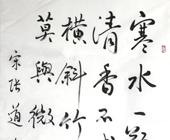 寒水一
清香不
横斜竹
莫與微
宋張道